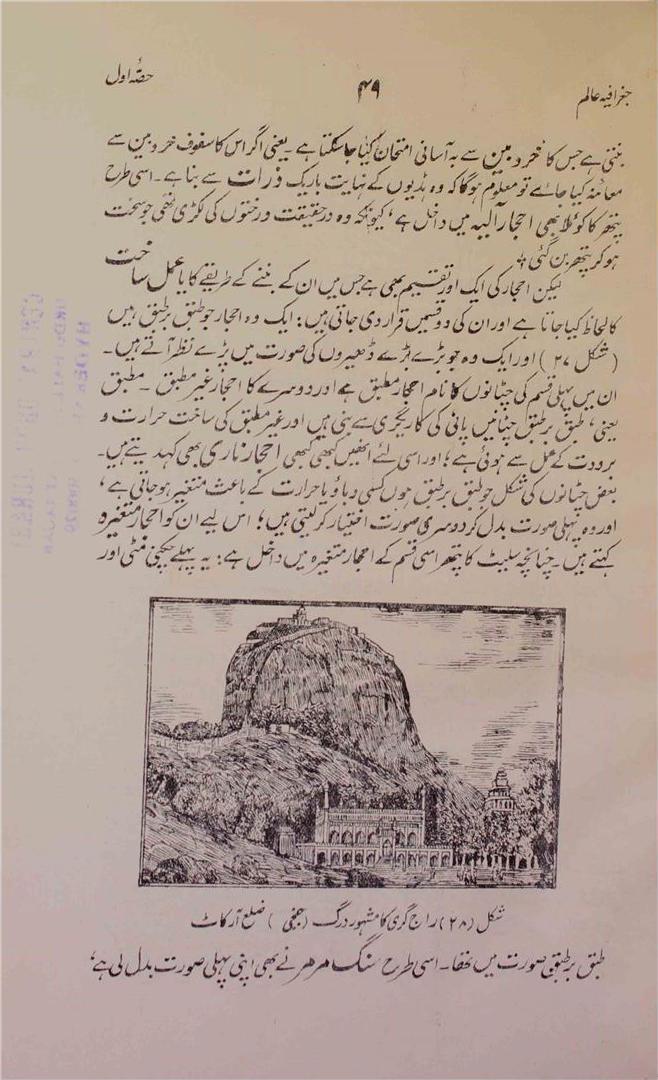 جغرافیہ عالم
۴۹
حصّۂ اول
بنتی ہے جس کا خردبین سے بہ آسانی امتحان کیا جا سکتا ہے۔ یعنی اگر اس کا سفوف خردبین سے
معائنہ کیا جائے تو معلوم ہوگا کہ وہ ہڈیوں کے نہایت باریک ذرات سے بنا ہے۔ اسی طرح
پتھر کا کوئلا بھی احجار آلیہ میں داخل ہے، کیونکہ وہ درحقیقت درختوں کی لکڑی تھی جو سخت
ہو کر پتھر بن گئی۔
لیکن احجار کی ایک اور تقسیم بھی ہے جس میں ان کے بننے کے طریقے کا یا عمل ساخت
کا لحاظ کیا جاتا ہے اور ان کی دو قسمیں قرار دی جاتی ہیں: ایک وہ احجار جو طبق برطبق ہیں
(شکل ۲۷) اور ایک وہ جو بڑے بڑے ڈھیروں کی صورت میں پڑے نظر آتے ہیں۔
ان میں پہلی قسم کی چٹانوں کا نام احجار مطبق ہے اور دوسرے کا احجار غیر مطبق۔ مطبق
یعنی، طبق برطبق چٹانیں پانی کی کاریگری سے بنی ہیں اور غیر مطبق کی ساخت حرارت و
برودت کے عمل سے ہوئی ہے؛ اور اسی لئے انھیں کبھی کبھی احجار ناری بھی کہدیتے ہیں۔
بعض چٹانوں کی شکل جو طبق برطبق ہوں کسی دباؤ یا حرارت کے باعث متغیر ہو جاتی ہے،
اور وہ پہلی صورت بدل کر دوسری صورت اختیار کر لیتی ہیں؛ اس لیے ان کو احجار متغیرہ
کہتے ہیں۔ چنانچہ سلیٹ کا پتھر اسی قسم کے احجار متغیرہ میں داخل ہے: یہ پہلے چکنی مٹی اور
شکل (۲۸) راج گری کا مشہور درگ (جنجی) ضلع آرکاٹ
طبق برطبق صورت میں تھا۔ اسی طرح سنگ مرمر نے بھی اپنی پہلی صورت بدل لی ہے،